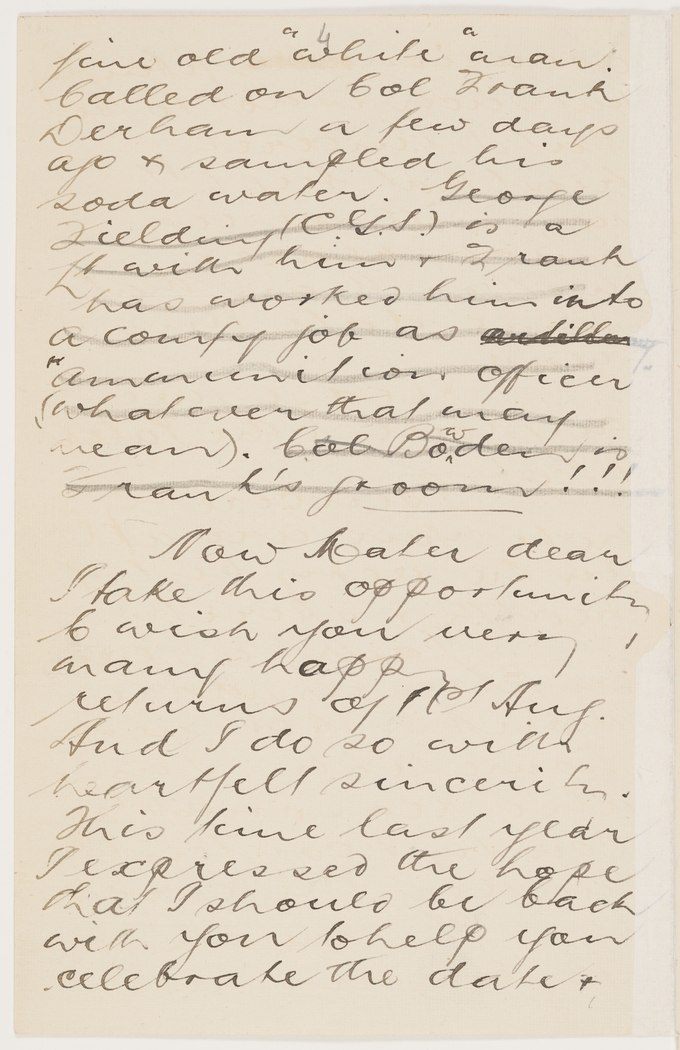 4
fine old "white" man.
Called on Col Frank
Derham a few days
ago & sampled his
soda water. George
Fielding (C.G.S.) is a
Lt with him & Frank
has worked him into
a comfy job as artiller
"ammunition officer
(whatever that may
mean). Col Bowden is
Frank's groom!!!
Now Mater dear
I take this opportunity
to wish you very,
many happy
returns of 1st Aug.
And I do so with
heartfelt sincerity.
This time last year
I expressed the hope
that I should be back
with you to help you
celebrate the date &